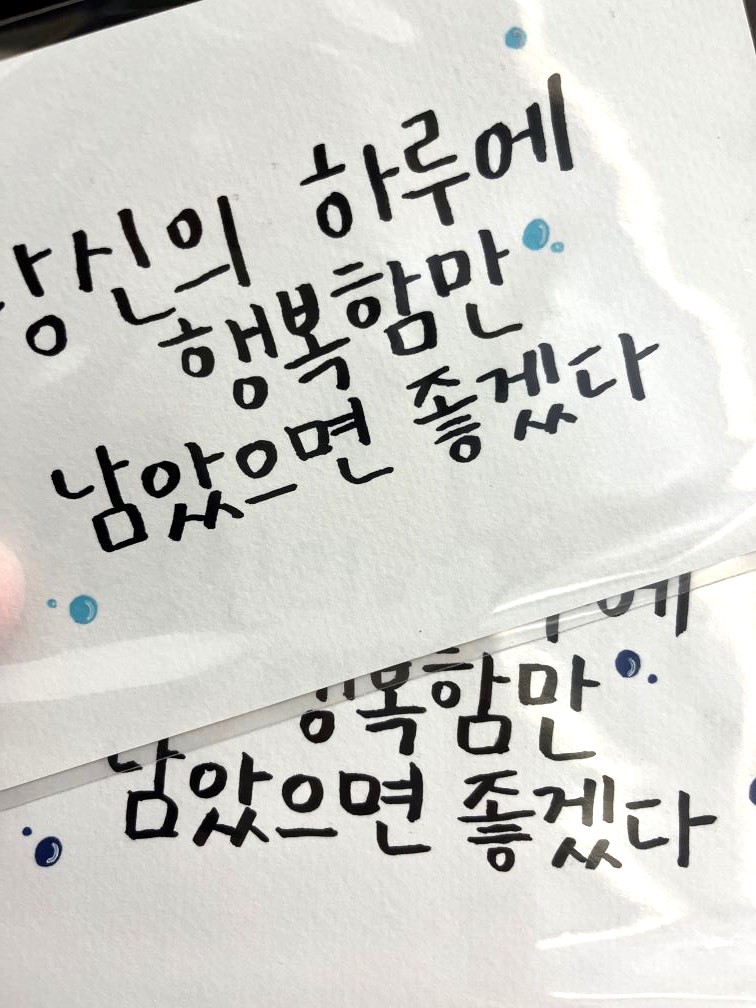 당신의 하루에
행복함만
남았으면 좋겠다
행복함만
남았으면 좋겠다